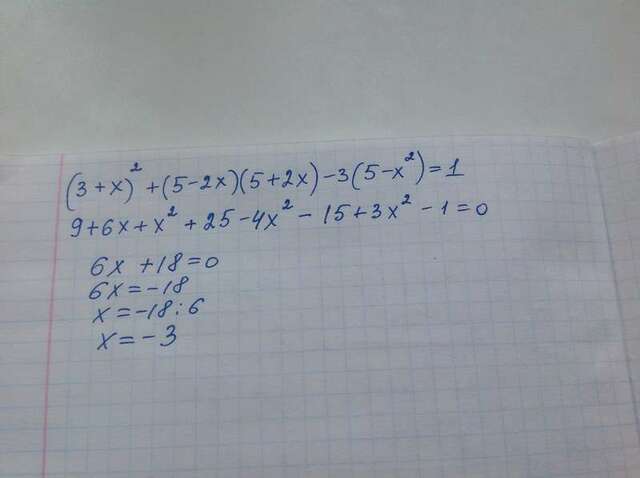 (3+x)² + (5-2x)(5+2x) - 3(5-x²) = 1
9+6x+x² + 25 - 4x² - 15 + 3x² - 1 = 0
6x + 18 = 0
6x = -18
x = -18 : 6
x = -3